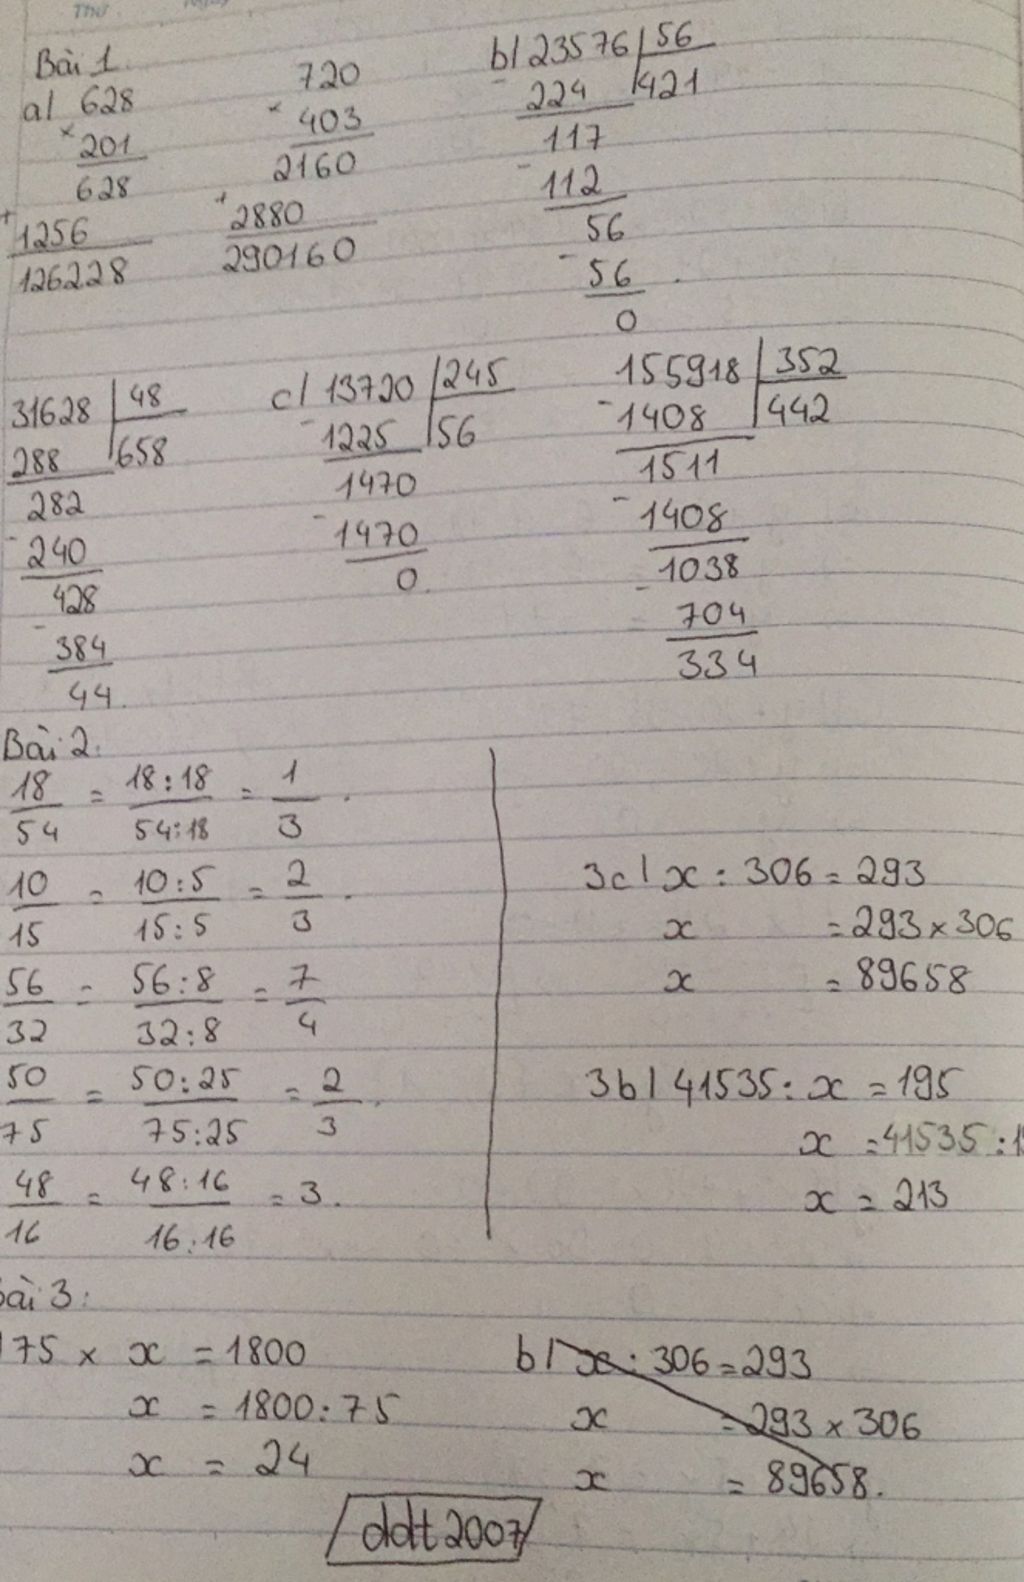 Bài 1
a/ 628
×
201
628
+
1256
126228
720
×
403
2160
+
2880
290160
b/ 23576 56
- 224 421
117
- 112
56
- 56
0
31628 48
288 658
282
- 240
428
- 384
44.
c/ 13720 245
- 1225 56
1470
- 1470
0.
155918 352
- 1408 442
1511
- 1408
1038
- 704
334
Bài 2:
18/54 = 18:18/54:18 = 1/3.
10/15 = 10:5/15:5 = 2/3.
56/32 = 56:8/32:8 = 7/4
50/75 = 50:25/75:25 = 2/3.
48/16 = 48:16/16:16 = 3.
3c/ x : 306 = 293
x = 293 × 306
x = 89658
3b/ 41535 : x = 195
x = 41535 :
x = 213
3:
75 × x = 1800
x = 1800 : 75
x = 24
b/ x : 306 = 293
x = 293 × 306
x = 89658.
ddt2007